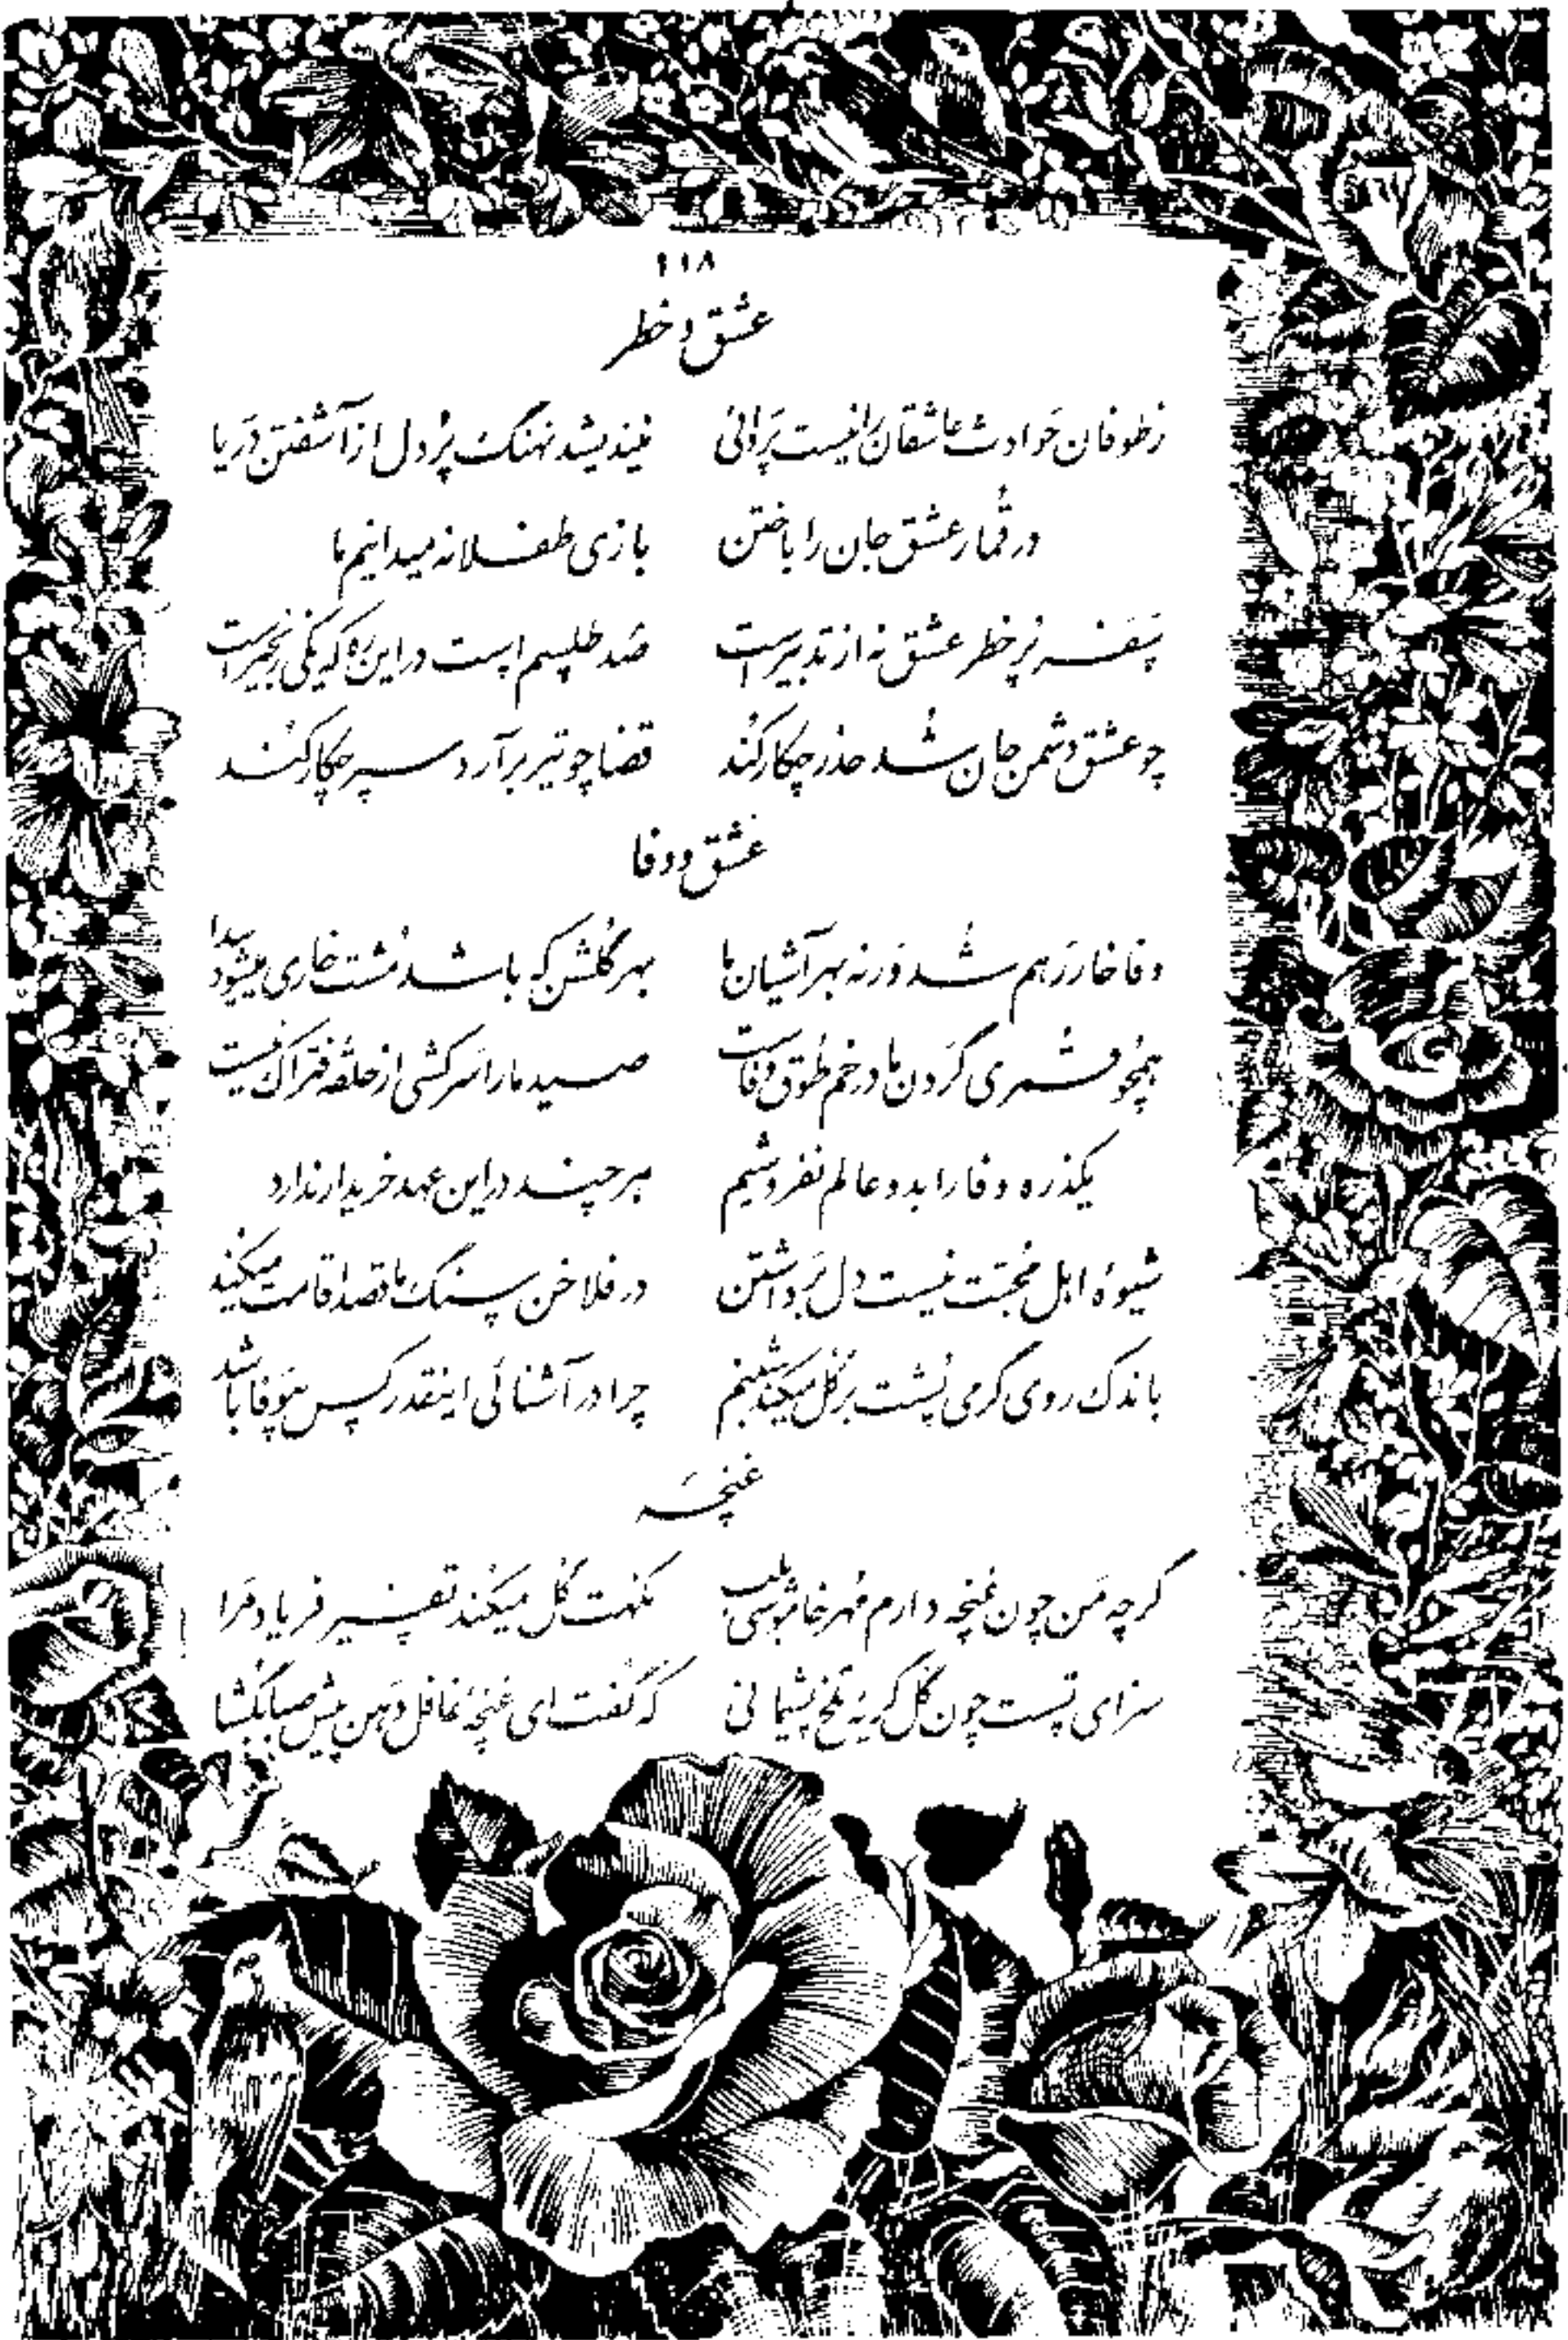 ۱۱۸
عشق و خطر
ز طوفان حَوادث عاشقان را نیست پَروائی نیندیشد نهنگ پُر دل از آشفتن دَریا
در قُمار عشق جان را باختن بازی طفلانه میدانیم ما
سَفَر پُر خطر عشق نه از تدبیر است صَد طلسم است در این رَه که یکی زنجیر است
چو عشق دشمن جان شُد حذر چکار کُند قضا چو تیر برآرد سپر چکار کُنند
عشق و وفا
وفا خار رَهم شُد وَرنه بهر آشیان ما بهر گُلشن که باشد مُشت خاری میشود پیدا
همچو قُمری گَردن ما در خم طُوق وفاست صید ما را سَرکشی از حلقهٔ فتراک نیست
یکذره وفا را بدو عالم نفروشیم هر چند در این عهد خریدار ندارد
شیوهٔ اهل مُحبّت نیست دل بَرداشتن در فلاخن سنگ ما قصد اقامت میکند
باندک روی گرمی پُشت بَر گل میکند شبنم چرا در آشنائی اینقدر کس بیوَفا باشد
غنچَه
گرچه مَن چون غُنچه دارم مُهر خاموشی بلب نکهت گُل میکُند تفسیر فریاد مَرا
سزای تست چون گل گریهٔ تلخ پشیمانی که گفت ای غنچهٔ غافل دَهن پیش صبا بگشا